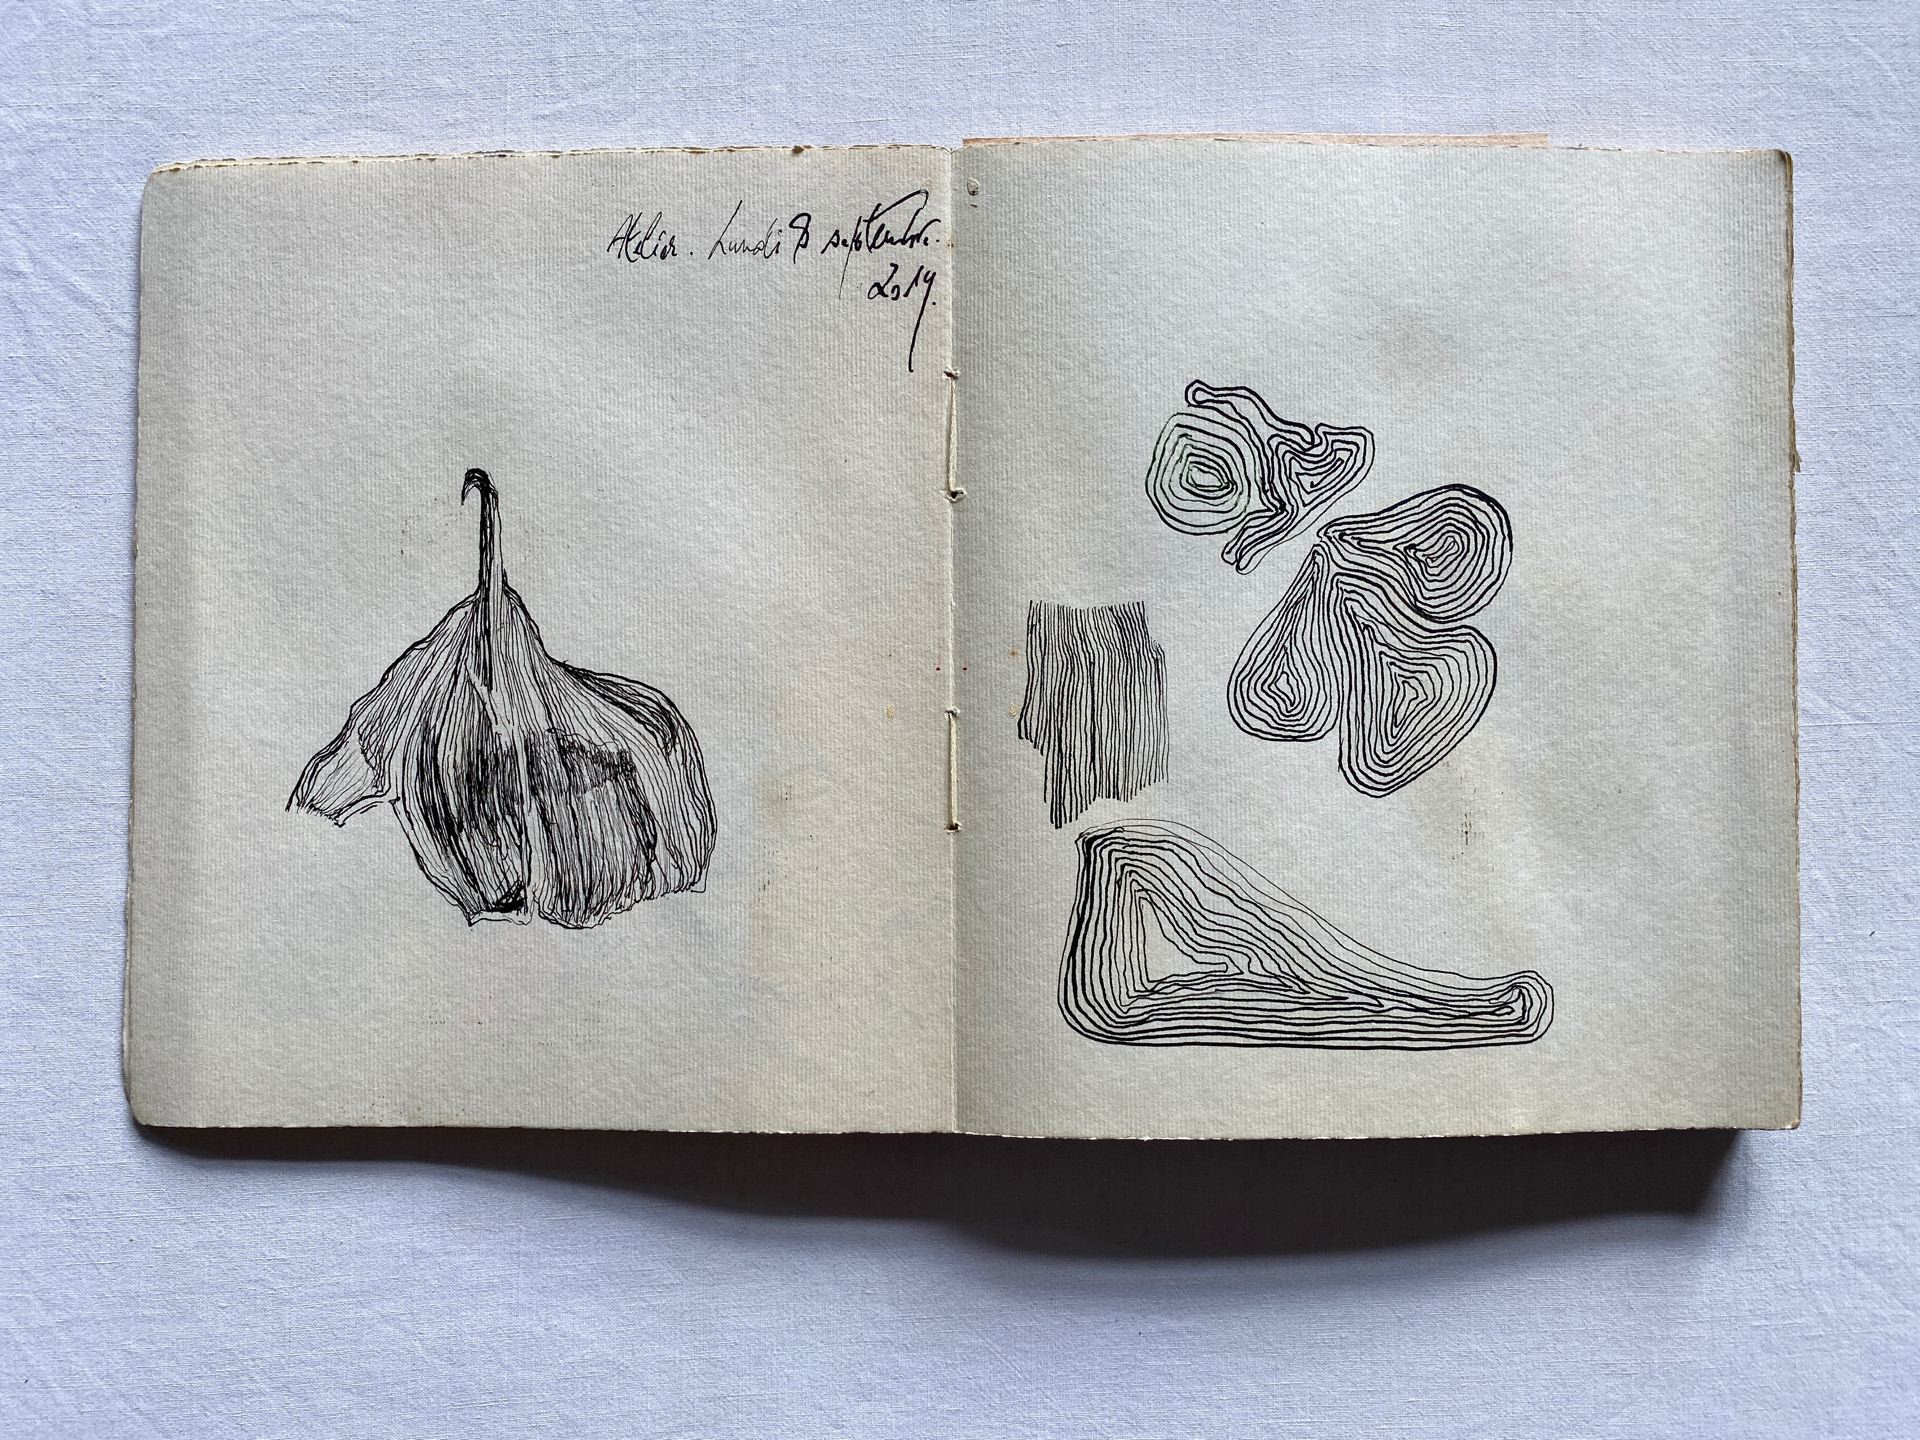 Atelier. Lundi 8 septembre.
2014.